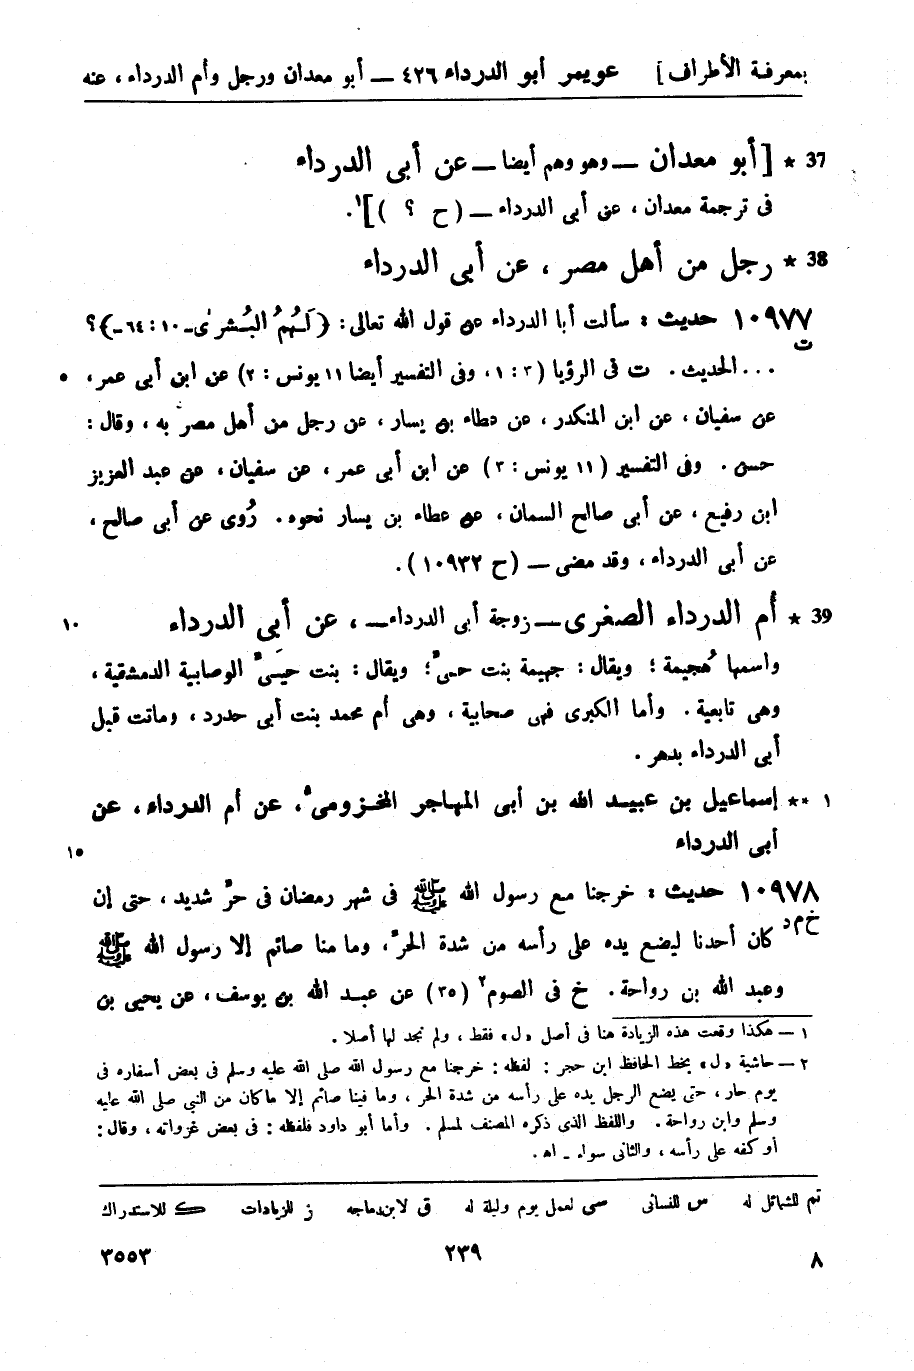 بمعرفة الأطراف] عويمر أبو الدرداء ٤٢٦ — أبو معدان ورجل وأم الدرداء ، عنه
37 * [أبو معدان — وهو وهم أيضا — عن أبى الدرداء
فى ترجمة معدان ، عن أبى الدرداء — (ح ؟ )]١.
38 * رجل من أهل مصر ، عن أبى الدرداء
١٠٩٧٧ حديث : سألت أبا الدرداء عن قول الله تعالى: ﴿لَهُمُ البُشرىٰ-١٠ : ٦٤-﴾؟
ت
... الحديث . ت فى الرؤيا (٣ : ١، وفى التفسير أيضا ١١ يونس : ٢) عن ابن أبى عمر، •
عن سفيان ، عن ابن المنكدر ، عن عطاء بن يسار ، عن رجل من أهل مصر به ، وقال :
حسن . وفى التفسير (١١ يونس : ٣) عن ابن أبى عمر ، عن سفيان ، عن عبد العزيز
ابن رفيع ، عن أبى صالح السمان ، عن عطاء بن يسار نحوه . رُوى عن أبى صالح ،
عن أبى الدرداء ، وقد مضى — (ح ١٠٩٣٢).
39 * أم الدرداء الصغرى — زوجة أبى الدرداء — ، عن أبى الدرداء ١٠
واسمها هُجيمة ؛ ويقال : جهيمة بنت حىّ؛ ويقال : بنت حيَىّ الوصابية الدمشقية ،
وهى تابعية . وأما الكبرى فهى صحابية ، وهى أم محمد بنت أبى حدرد ، وماتت قبل
أبى الدرداء بدهر .
١ ** إسماعيل بن عبيد الله بن أبى المهاجر المخزومىّ، عن أم الدرداء، عن
أبى الدرداء ١٥
١٠٩٧٨ حديث : خرجنا مع رسول الله ﷺ فى شهر رمضان فى حرّ شديد ، حتى إن
خ م د
كان أحدنا ليضع يده على رأسه من شدة الحرّ، وما منا صائم إلا رسول الله ﷺ
وعبد الله بن رواحة . خ فى الصوم٢ (٣٥) عن عبد الله بن يوسف ، عن يحيى بن
١ — هكذا وقعت هذه الزيادة هنا فى أصل «ل» فقط ، ولم نجد لها أصلا .
٢ — حاشية «ل» بخط الحافظ ابن حجر : لفظه : خرجنا مع رسول الله صلى الله عليه وسلم فى بعض أسفاره فى
يوم حار ، حتى يضع الرجل يده على رأسه من شدة الحر ، وما فينا صائم إلا ما كان من النبي صلى الله عليه
وسلم وابن رواحة . واللفظ الذى ذكره المصنف لمسلم . وأما أبو داود فلفظه : فى بعض غزواته ، وقال :
أو كفه على رأسه ، والثانى سواء ـ اهـ .
تم للشمائل له س للنسائى سى لعمل يوم وليلة له ق لابن ماجه ز للزيادات ك للاستدراك
٨ ٢٣٩ ٣٥٥٣